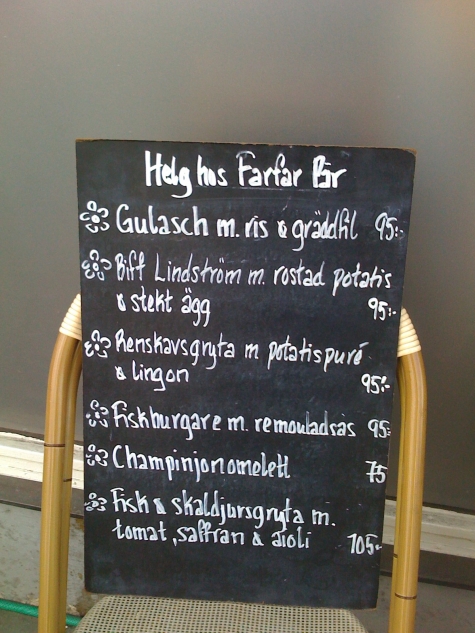 Helg hos Farfar Pär
Gulasch m. ris & gräddfil 95:-
Biff Lindström m. rostad potatis
& stekt ägg 95:-
Renskavsgryta m potatispuré
& lingon 95:-
Fiskburgare m. remouladsås 95:-
Champinjonomelett 75
Fisk & skaldjursgryta m.
tomat, saffran & aioli 105-